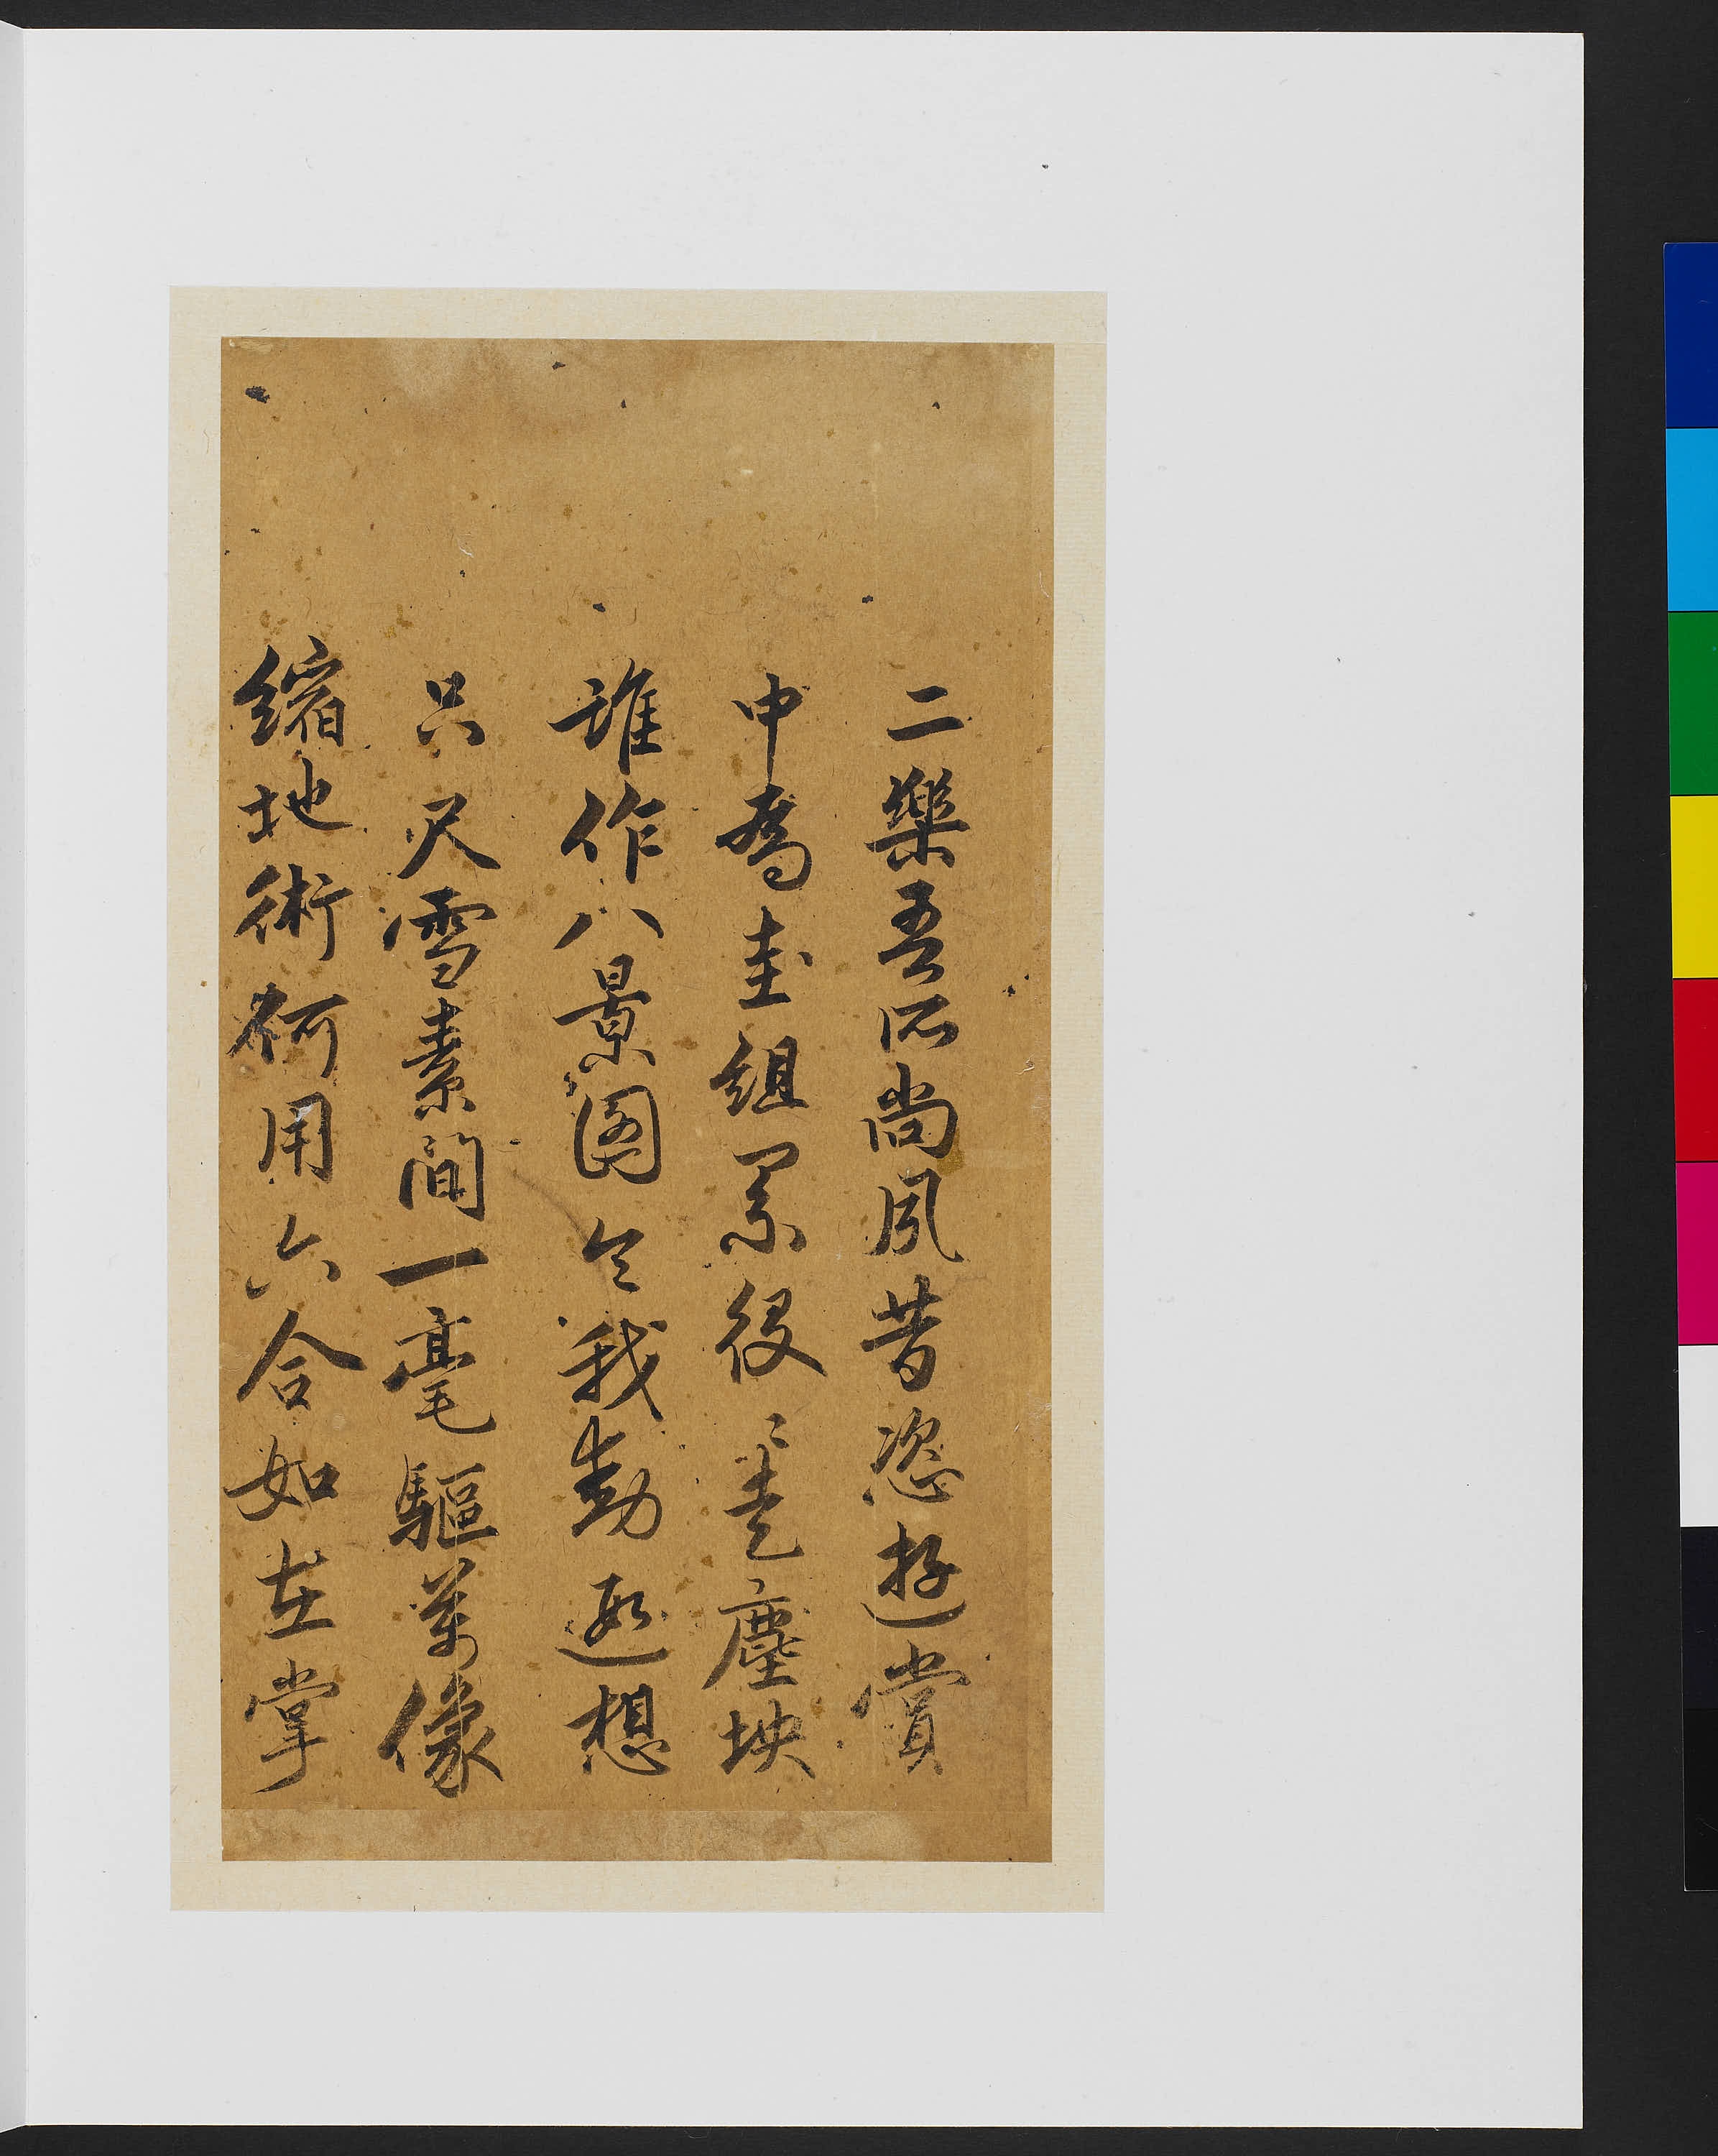 二樂吾所尚夙昔恣遊賞
中爲圭組累役〻走塵坱
誰作八景圖令我動遐想
只尺雪素間一毫驅萬像
縮地術何用六合如在掌